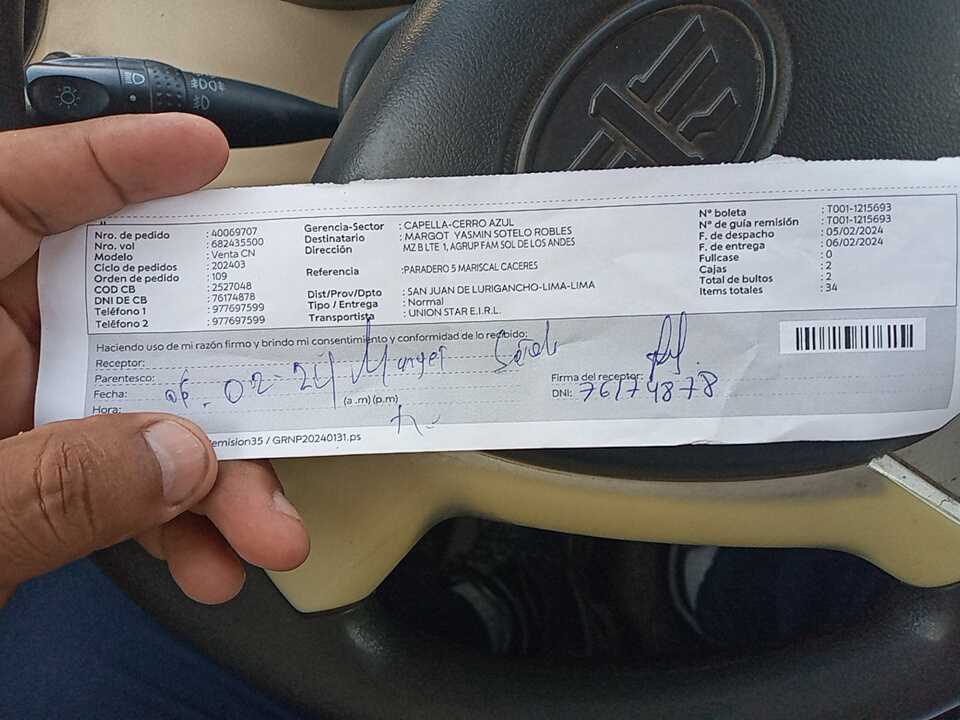 Nro. de pedido : 40069707
Nro. vol : 682435500
Modelo : Venta CN
Ciclo de pedidos : 202403
Orden de pedido : 109
COD CB : 2527048
DNI DE CB : 76174878
Teléfono 1 : 977697599
Teléfono 2 : 977697599
Gerencia-Sector : CAPELLA-CERRO AZUL
Destinatario : MARGOT YASMIN SOTELO ROBLES
Dirección MZ B LTE 1, AGRUP FAM SOL DE LOS ANDES
Referencia :PARADERO 5 MARISCAL CACERES
Dist/Prov/Dpto : SAN JUAN DE LURIGANCHO-LIMA-LIMA
Tipo / Entrega : Normal
Transportista : UNION STAR E.I.R.L.
N° boleta : T001-1215693
N° de guía remisión : T001-1215693
F. de despacho : 05/02/2024
F. de entrega : 06/02/2024
Fullcase : 0
Cajas : 2
Total de bultos : 2
Items totales : 34
Haciendo uso de mi razón firmo y brindo mi consentimiento y conformidad de lo recibido:
Receptor:
Parentesco:
Fecha: 06-02-24
Hora: (a .m) (p.m)
Firma del receptor:
DNI: 76174878
emision35 / GRNP20240131.ps